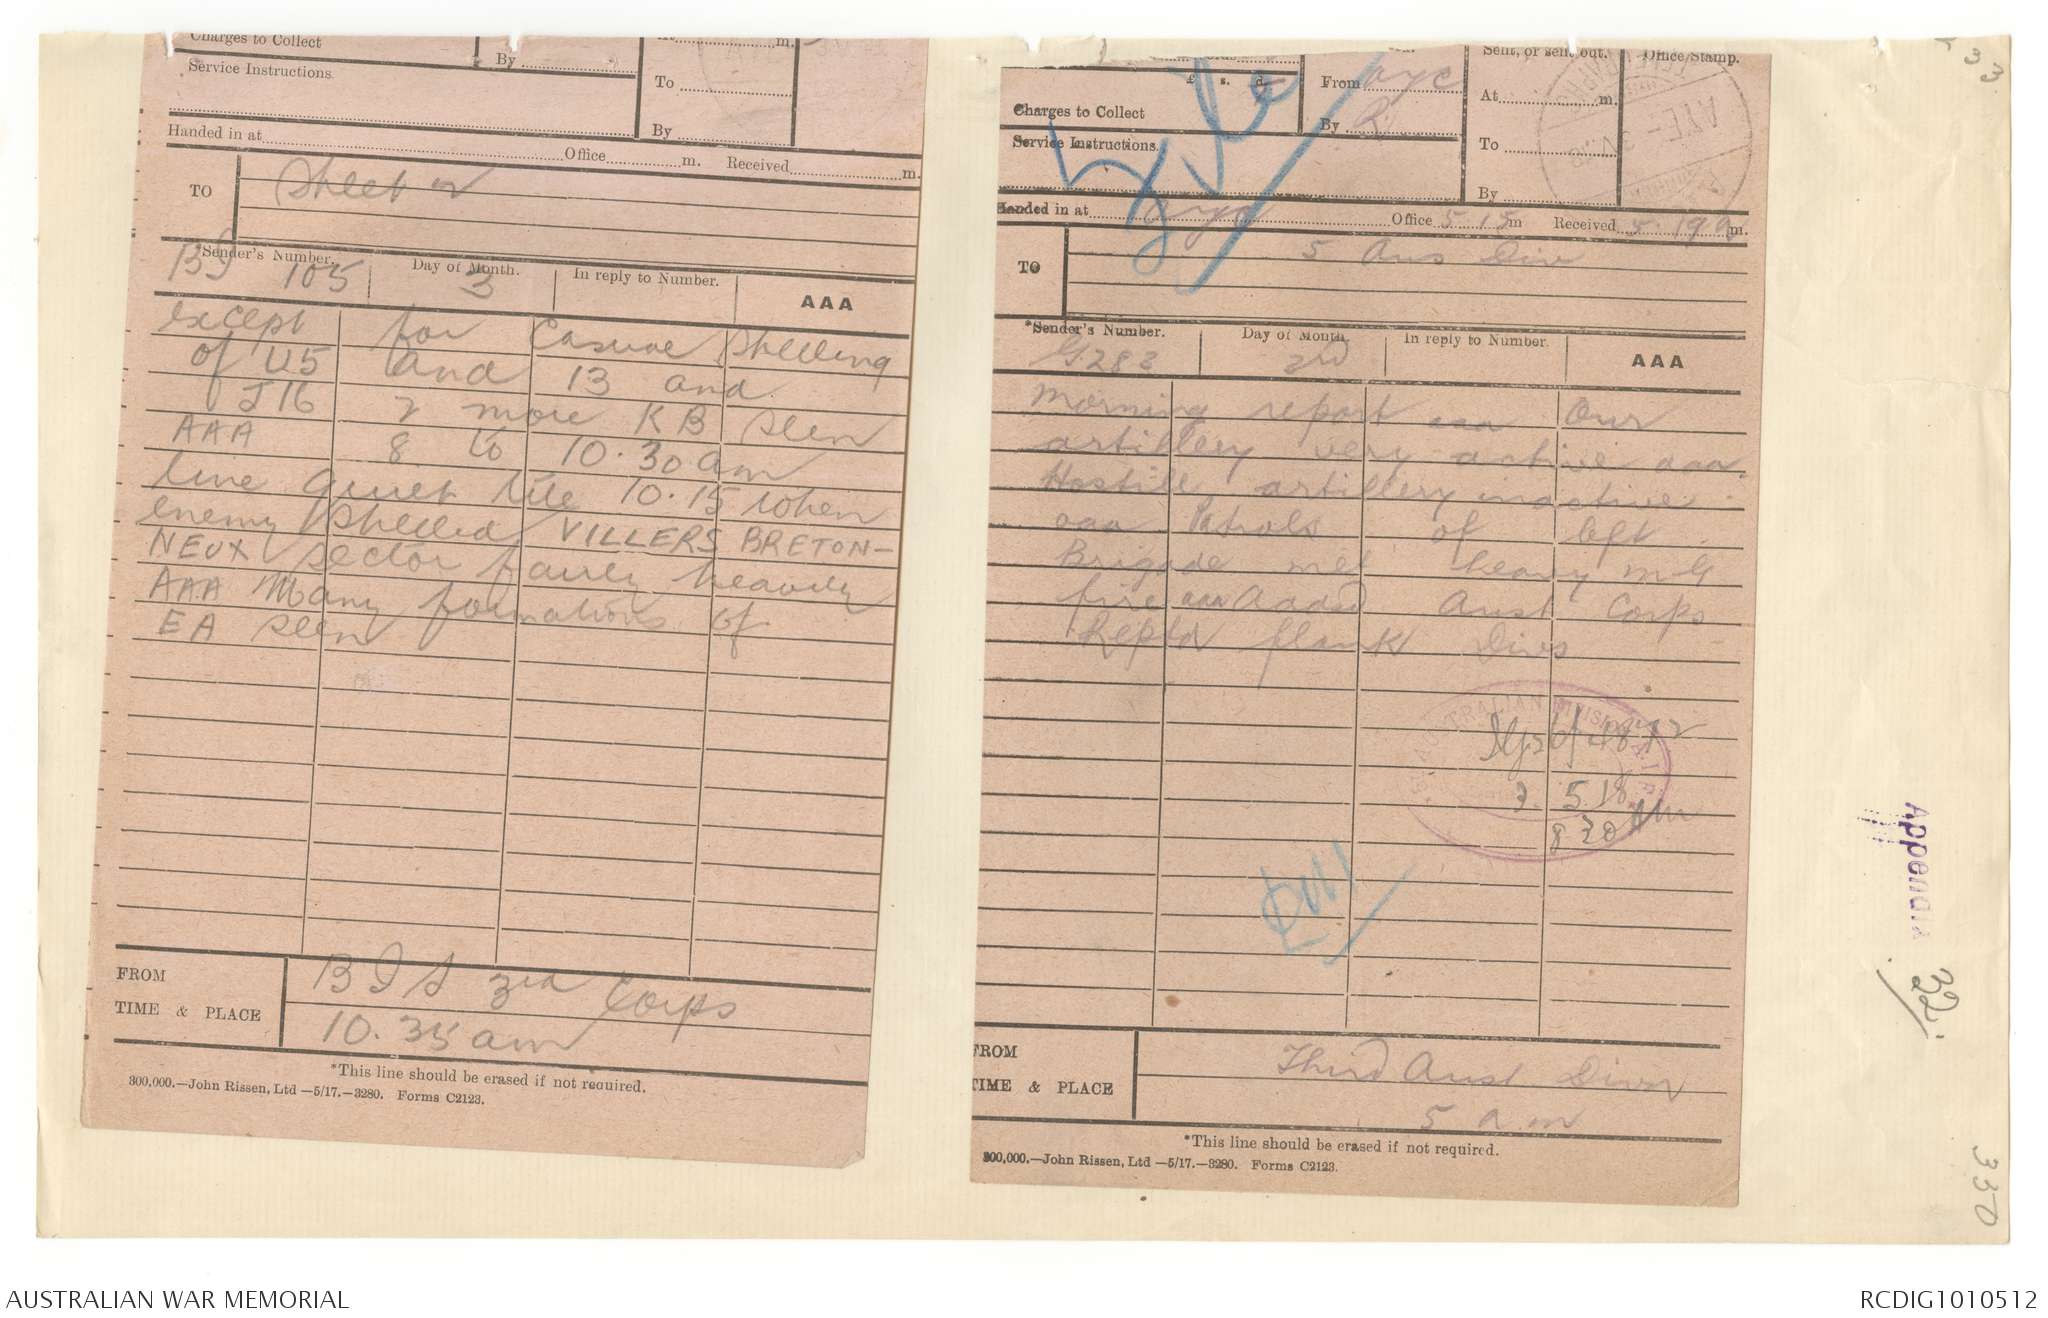 Charges to Collect
Service Instructions.
By
To
By
m.
Handed in at Office m. Received m.
TO
Sheet 2
*Sender's Number. Day of Month. In reply to Number. AAA
105 3
except for Casual Shelling
of U5 and 13 and
of J16 2 more KB seen
AAA 8 to 10.30 am
line quiet till 10.15 when
enemy shelled VILLERS BRETON-
NEUX sector fairly heavily
AAA Many formations of
EA seen
FROM
TIME & PLACE
3rd Corps
10.35 am
*This line should be erased if not required.
300,000.—John Rissen, Ltd —5/17.—3280. Forms C2123.
£ s. d.
Charges to Collect
Service Instructions.
From
By
Sent, or sent out.
At m.
To
By
Office Stamp.
Handed in at Office 5.15 m Received 5.19 a m.
TO
5 Aus Div
*Sender's Number. Day of Month. In reply to Number. AAA
G.283 3rd
Morning report aaa Our
artillery very active aaa
Hostile artillery inactive
aaa Patrols of left
Brigade met heavy MG
fire aaa Added Aust Corps
Reptd flank Divs
AUSTRALIAN DIVISION
3.5.18
8 30 AM
FROM
TIME & PLACE
Third Aust Divn
5 a.m
*This line should be erased if not required.
300,000.—John Rissen, Ltd —5/17.—3280. Forms C2123.
33
Appendix
32
330
AUSTRALIAN WAR MEMORIAL
RCDIG1010512